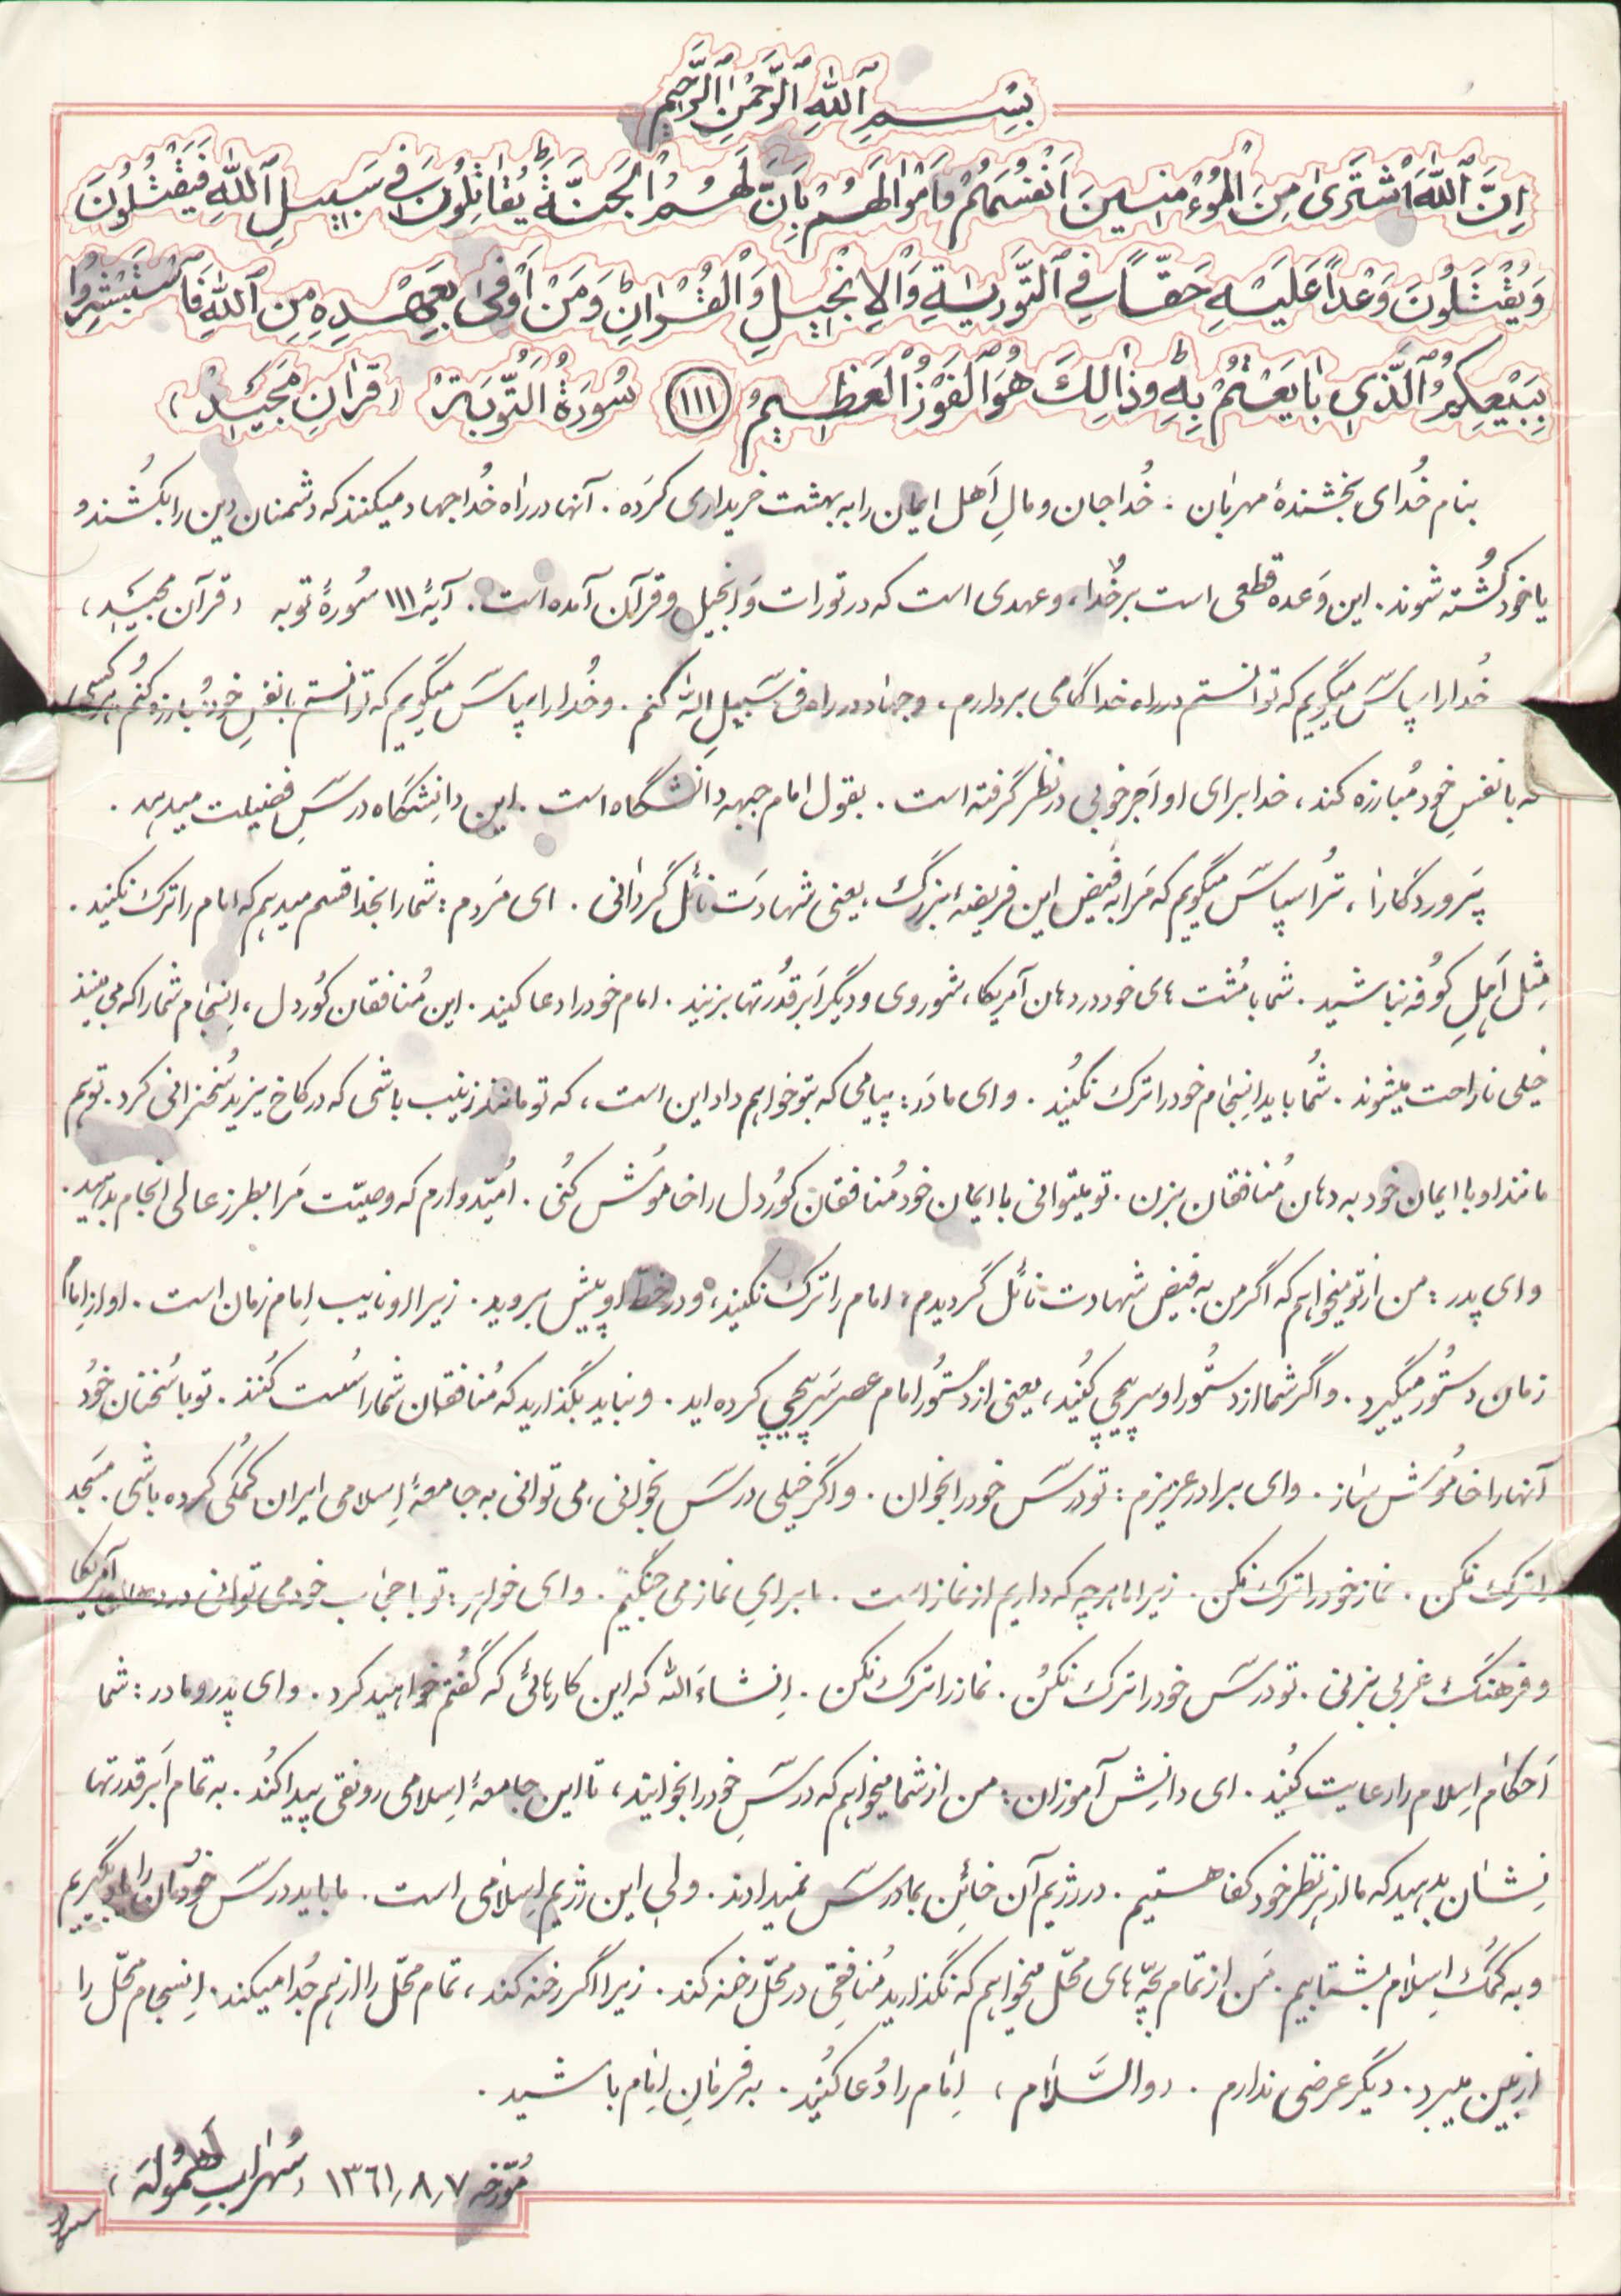 بِسْمِ ٱللّٰهِ ٱلرَّحْمٰنِ ٱلرَّحِيمِ
اِنَّ ٱللّٰهَ ٱشْتَرىٰ مِنَ ٱلْمُؤْمِنينَ اَنْفُسَهُمْ وَاَمْوٰالَهُمْ بِاَنَّ لَهُمُ الْجَنَّةَ يُقٰاتِلُونَ فى سَبيلِ ٱللّٰهِ فَيَقْتُلُونَ
وَيُقْتَلُونَ وَعْداً عَلَيْهِ حَقّاً فِى ٱلتَّوْريٰةِ وَٱلْاِنْجيلِ وَٱلْقُرْاٰنِ وَمَنْ اَوْفىٰ بِعَهْدِهِ مِنِ ٱللّٰهِ فَاسْتَبْشِرُوا
بِبَيْعِكُمُ ٱلَّذى بٰايَعْتُمْ بِهِ وَذٰالِكَ هُوَ ٱلْفَوْزُ الْعَظيمُ ١١١ سُورَةُ التَّوبَة (قرٰانِ مَجيد)
بنام خُدای بخشندهٔ مهربان . خُدا جان و مالِ اَهل ایمان را به بهشت خریداری کرَده . آنها در راه خُدا جهاد میکنند که دشمنان دین را بکُشند و
یا خود کُشته شوند . این وَعده قطعی است بر خُدا ، و عهدی است که در تورات وَ انجیل و قرآن آمده است . آیهٔ ١١١ سُورهٔ توبه (قرآن مجید)
خُدا را سپاسَ میگویم که توانستم در راه خدا گامی بردارم ، و جهاد در راه فی سَبیلِ الله کنم . و خُدا را سپاسَ میگویم که توانستم با نفسِ خود مُبارزه کنم هر کسی
که با نفسِ خود مُبارزه کند ، خدا برای او اَجر خوبی در نظر گرفته است . بقول امام جبهه دانشگاه است . این دانِشگاه درسَِ فضیلت میدهد .
پَروردگارا ، تُرا سپاسَ میگویم که مَرا به فیض این فریضهٔ بزرگ ، یعنی شهادَت نائل گردانی . ای مَردم : شما را بخدا قسم میدهم که امام را ترک نکنید .
مِثل اَهلِ کوُفه نباشید . شما با مُشت های خود در دهان آمریکا ، شوروی و دیگر اَبرقدُرتها بزنید . امام خود را دعا کنید . این مُنافقان کوُر دل ، اِنسجام شما را که می بینند
خیلی ناراحت میشوند . شُما باید اِنسجام خود را ترک نکُنید . و ای مادَر : پیامی که بتو خواهم داد این است ، که تو مانند زینب باشی که در کاخ یزید سُخنرانی کرد . تو هم
مانند او با ایمان خود به دهان مُنافقان بزن . تو میتوانی با ایمان خود مُنافقان کوُردل را خاموُش کنُی . اُمیّدوارم که وصیّت مَرا بطرز عالی انجام بدهید .
و ای پدر : من از تو میخواهم که اگر من به فیض شهادت نائل گردیدم ، امام را ترک نکنید ، و در خطّ او پیش بروید . زیرا او نایب اِمام زمان است . او از اِمام
زمان دستُور میگیرد . و اگر شما از دستُور او سرپیچی کنُید ، یعنی از دستُور امام عصر سَرپیچی کرده اید . و نباید بگذارید که مُنافقان شما را سُست کنُند . تو با سُخنان خودُ
آنها را خاموُش ساز . و ای برادر عزیزم : تو درسَ خود را بخوان . و اگر خیلی درسَ بخوانی ، می توانی به جامعهٔ اِسلامی ایران کمکی کرده باشی . مسَجد
را ترک نکن . نماز خود را ترک نکن . زیرا ما هرچه که داریم از نماز است . ما برایِ نماز می جنگیم . و ای خواهر : تو با حجاب خود می توانی در دهان آمریکا
و فرهنگ غربی بزنی . تو درسَ خود را ترک نکنُ . نماز را ترک نکن . اِنشاءَالله که این کارهائی که گفتُم خواهید کرد . و ای پدر و مادر : شما
اَحکام اِسلام را رعایت کنُید . ای دانِش آموزان : من از شما میخواهم که درسَِ خود را بخوانید ، تا این جامعهٔ اِسلامی رونقی پیدا کنُد . به تمام اَبرقدرتها
نِشان بدهید که ما از هر نظر خود کفا هستیم . در رژیم آن خائِن بما درسَ نمیدادند . ولی این رژیم اِسلامی است . ما باید درسَ خودمان را یاد بگیریم
و به کمُک اِسلام بشتابیم . مَن از تمام بچّه های محلّ میخواهم که نگذارید مُنافقی در محلّ رخنه کند . زیرا اگر رخنه کند ، تمام محلّ را از هم جُدا میکند . اِنسجام محلّ را
از بین میبرد . دیگر عرضی ندارم . (والسَّلام) اِمام را دُعا کنُید . به فرمانِ اِمام باشید .
مُوّرخه ١٣٦١٫٨٫٧ (سُهراب